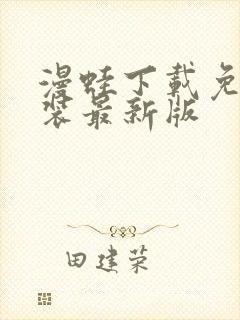 漫蛙下载免
装最新版
田建荣